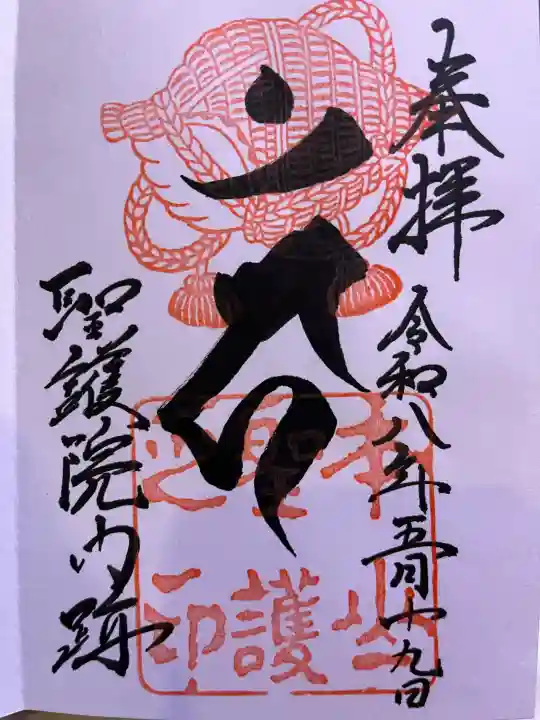 奉拝
令和八年五月十九日
聖護院門跡
本山
聖護
之印